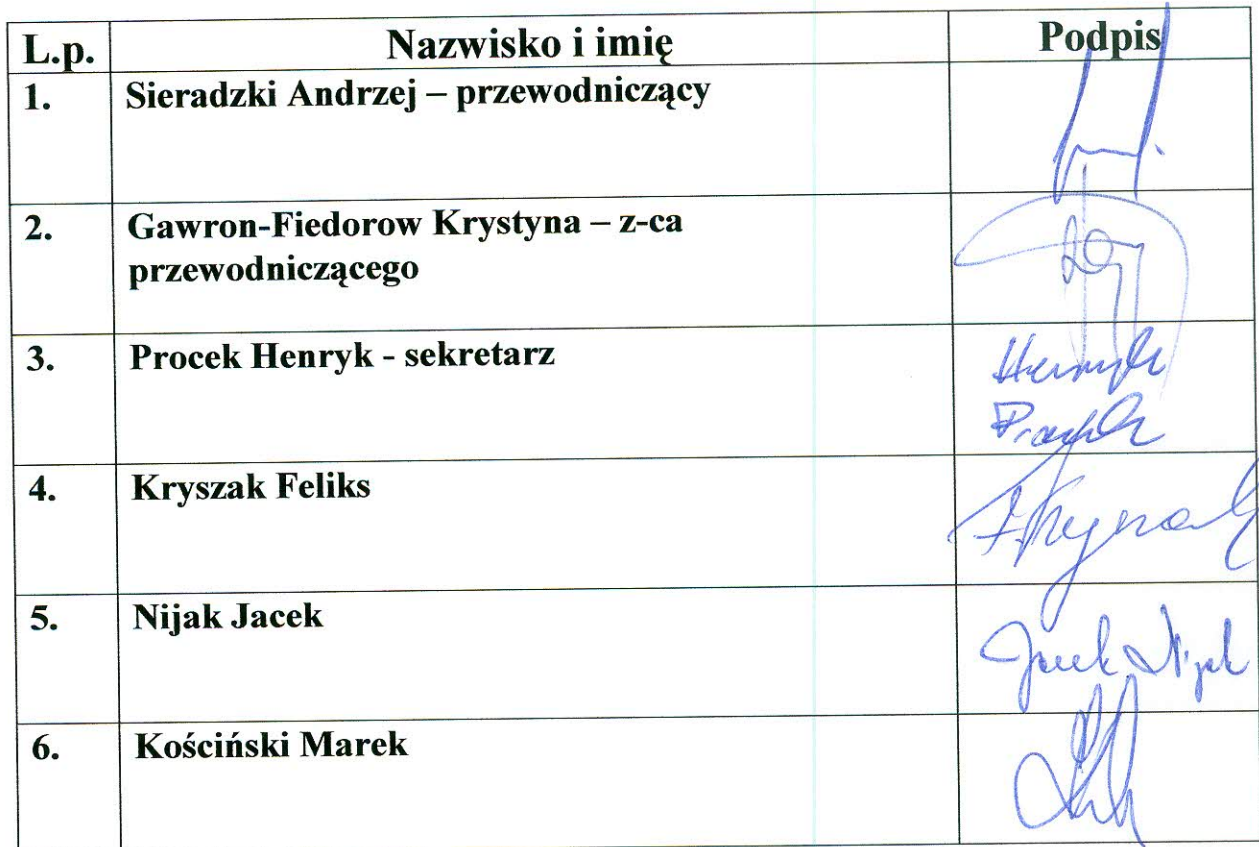 L.p. Nazwisko i imię Podpis
1. Sieradzki Andrzej – przewodniczący
2. Gawron-Fiedorow Krystyna – z-ca
przewodniczącego
3. Procek Henryk - sekretarz
Henryk
Procek
4. Kryszak Feliks
5. Nijak Jacek
Jacek Nijak
6. Kościński Marek